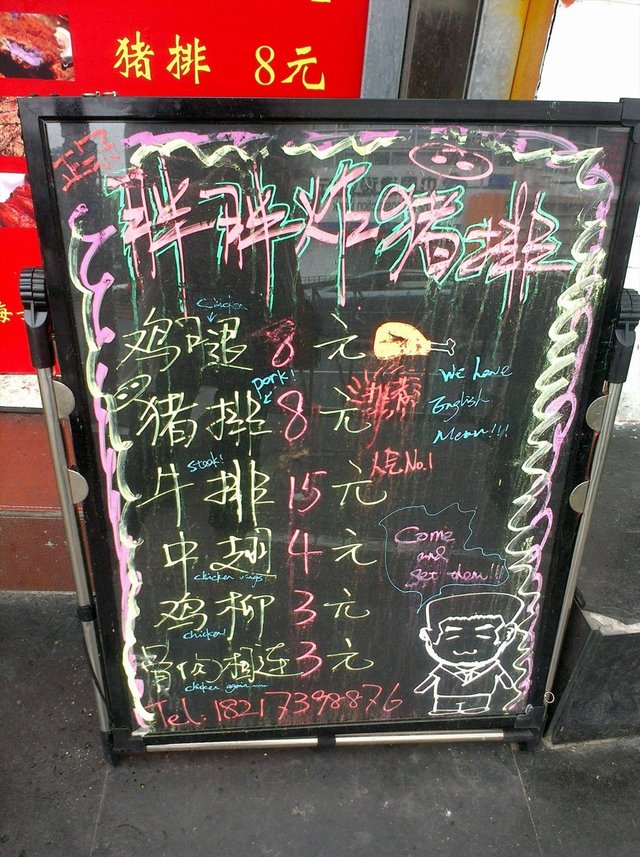 猪排 8元
正宗
胖胖炸猪排
chicken
鸡腿 8 元
We have
English
Menu!!!
pork!
猪排 8 元
推荐
人气No.1
steak!
牛排 15 元
中翅 4 元
chicken wings
Come
and
get them!!!
鸡柳 3 元
chicken!
骨肉相连 3 元
chicken again
Tel: 18217398876